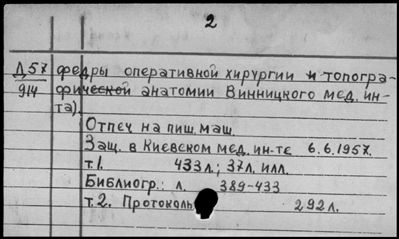 2
Д57 федры оперативной хирургии и топогра-
914 фической анатомии Винницкого мед. ин-
та).
Отпеч на пиш. маш.
Защ. в Киевском мед. ин-те 6.6.1957.
т.1. 433л.; 37л. илл.
Библиогр.: л. 389-433
т.2. Протоколы 292л.